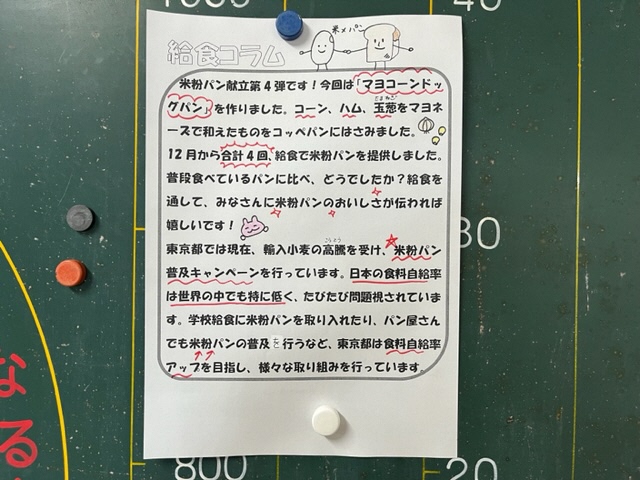 1000
40
米×パン
給食コラム
米粉パン献立第4弾です！今回は「マヨコーンドッ
グパン」を作りました。コーン、ハム、玉葱をマヨネ
たまねぎ
ーズで和えたものをコッペパンにはさみました。
12月から合計4回、給食で米粉パンを提供しました。
普段食べているパンに比べ、どうでしたか？給食を
通して、みなさんに米粉パンのおいしさが伝われば
嬉しいです！
東京都では現在、輸入小麦の高騰を受け、米粉パン
こうとう
普及キャンペーンを行っています。日本の食料自給率
は世界の中でも特に低く、たびたび問題視されていま
す。学校給食に米粉パンを取り入れたり、パン屋さん
でも米粉パンの普及を行うなど、東京都は食料自給率
アップを目指し、様々な取り組みを行っています。
80
なる
800
20